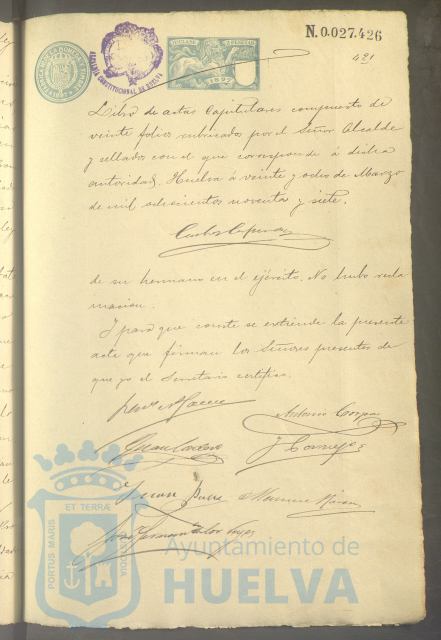 N.0.027.426
421
ALCALDÍA CONSTITUCIONAL DE HUELVA
1897
Libro de actas Capitulares compuesto de
veinte folios rubricados por el Señor Alcalde
y sellados con el que corresponde á dicha
autoridad. Huelva á veinte y ocho de Marzo
de mil ochocientos noventa y siete.
de su hermano en el ejército. No hubo recla
macion.
Y para que conste se extiende la presente
acta que firman los Señores presentes de
que yo el Secretario certifico.
Antonio
Juan
PORTUS MARIS ET TERRÆ CUSTODIA
Ayuntamiento de
HUELVA